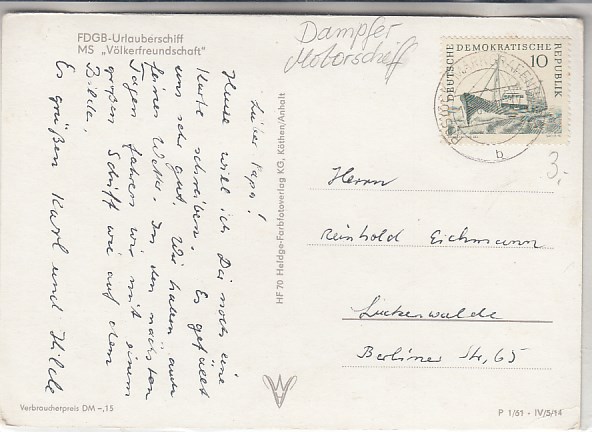 FDGB-Urlauberschiff
MS „Völkerfreundschaft"
Dampfer
Motorschiff
DEUTSCHE DEMOKRATISCHE REPUBLIK
10
b
3.-
Lieber Papa!
Heute will ich Dir noch eine
Karte schreiben. Es gefällt
uns sehr gut. Wir haben auch
feines Wetter. In den nächsten
Tagen fahren wir mit einem
großen Schiff wie auf dem
Bilde.
Es grüßen Karl und Hilde
HF 70 Heldge-Farbfotoverlag KG, Köthen/Anhalt
Herrn
Reinhold Eichmann
Luckenwalde
Berliner Str. 65
Verbraucherpreis DM -,15
P 1/61 · IV/5/14